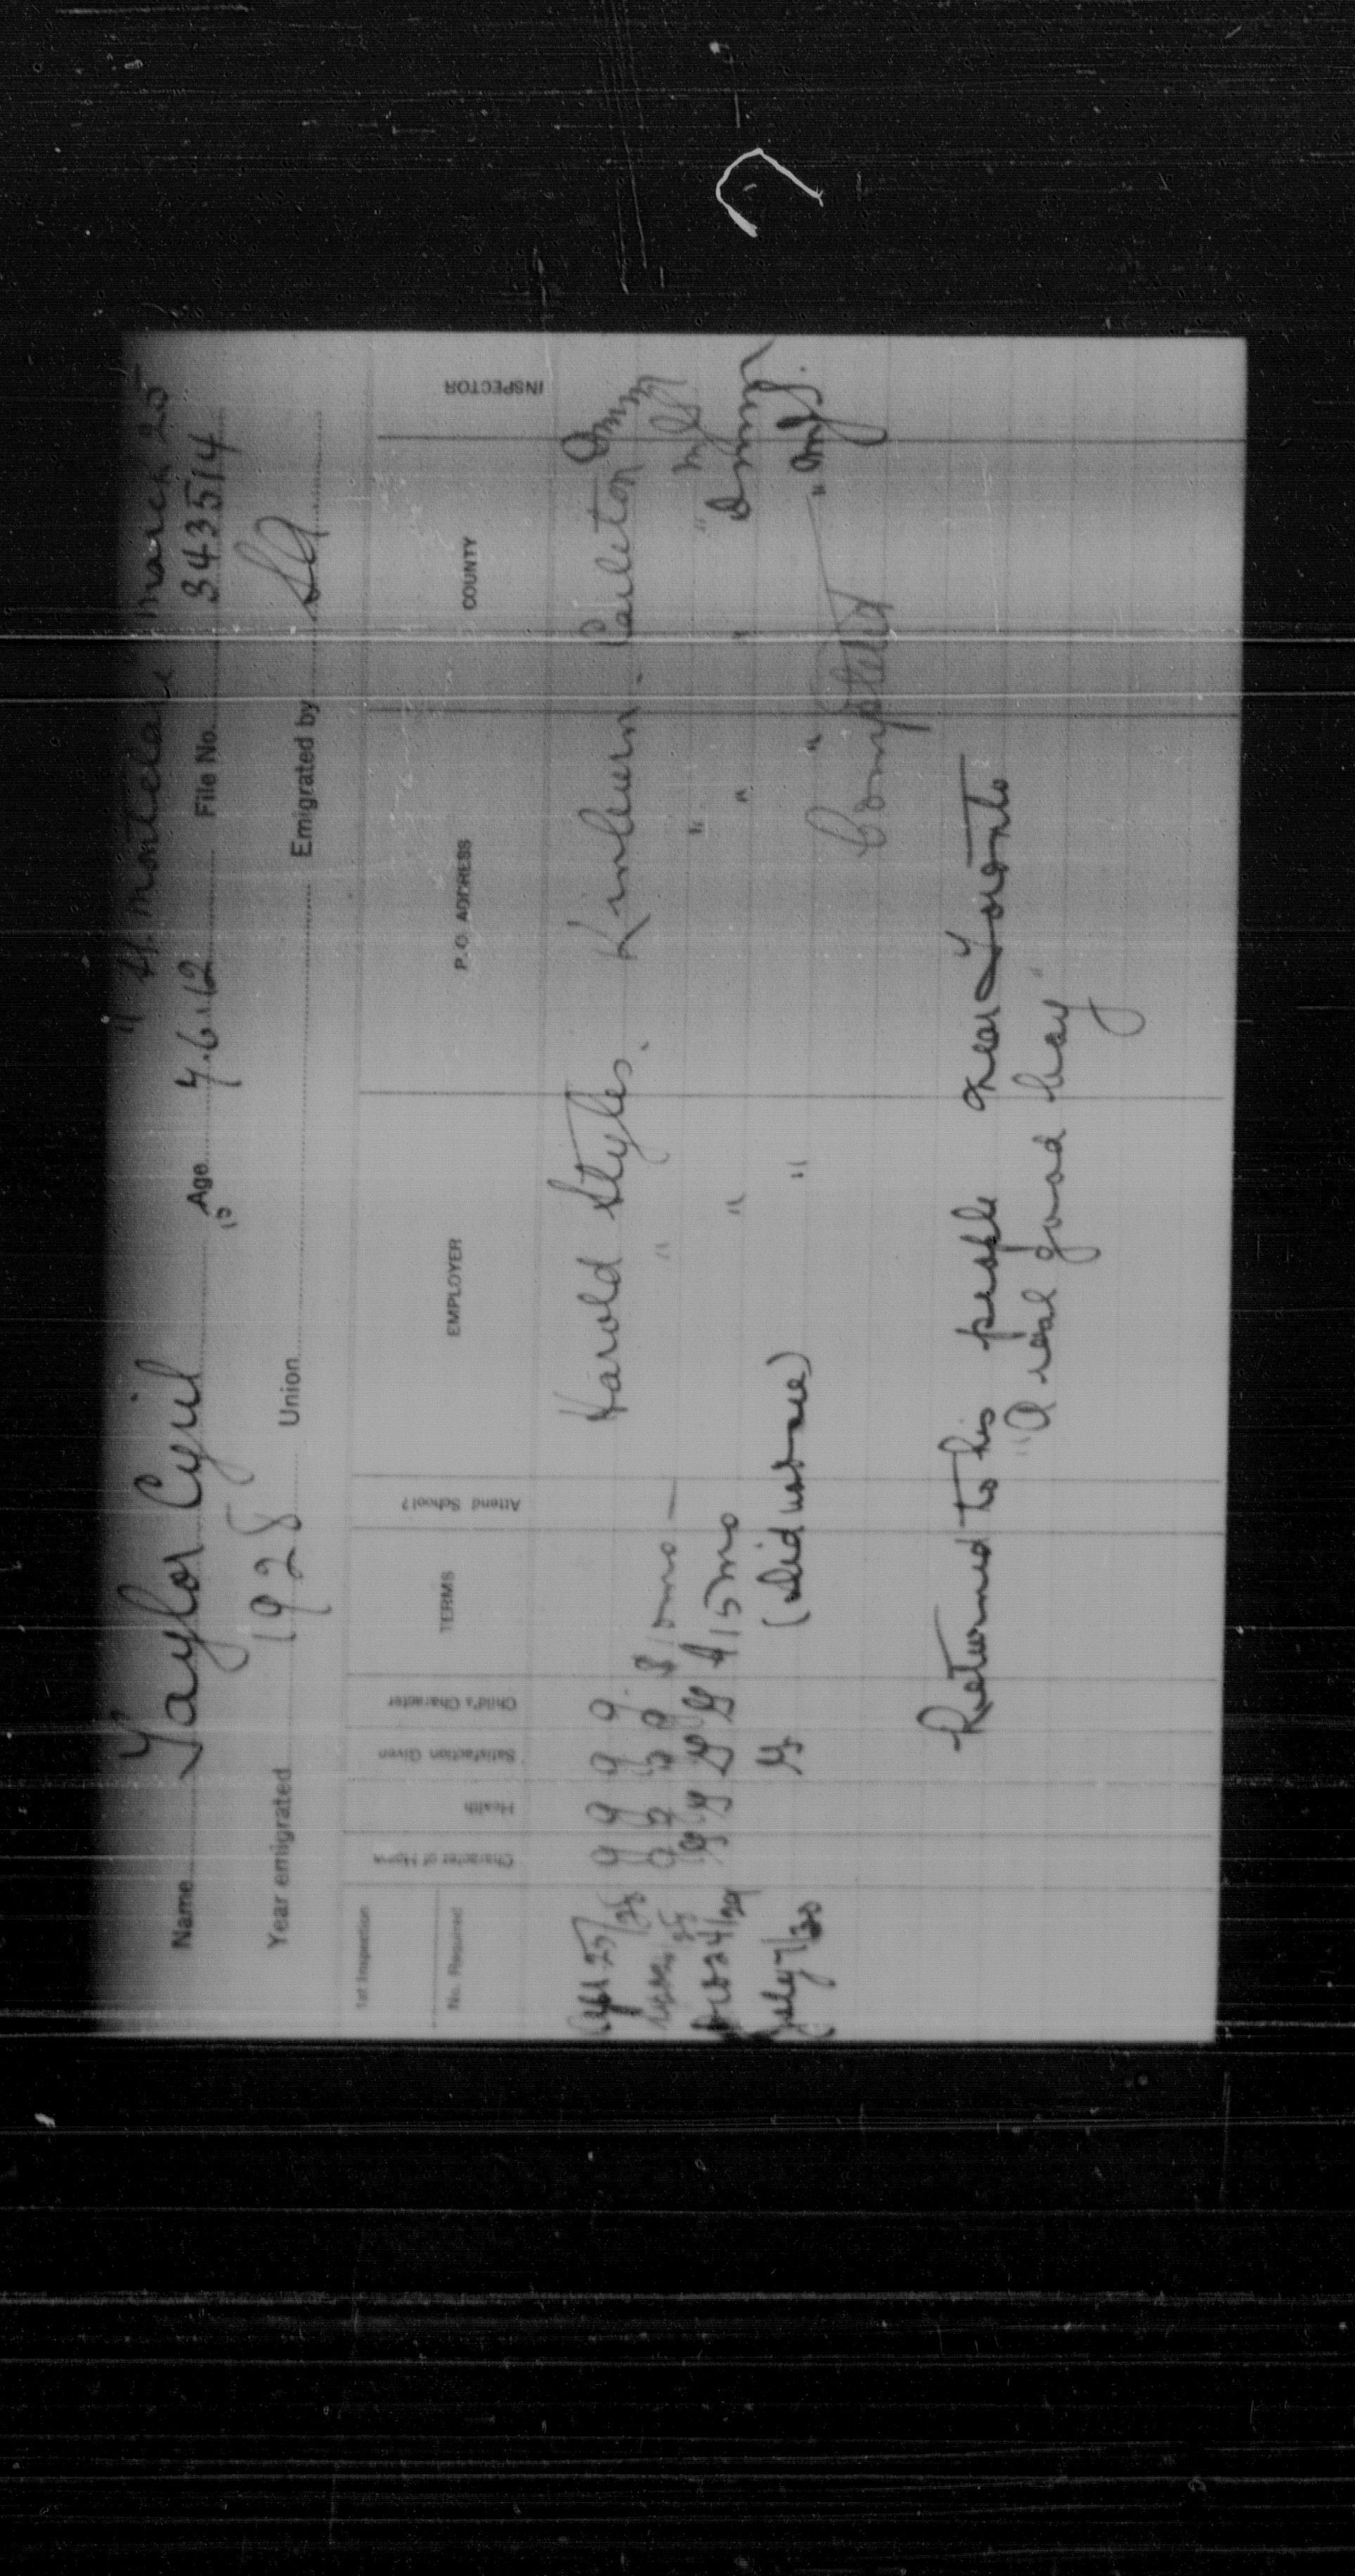 " SS. Montclare " March 25
Name Taylor Cyril 15 Age 7.6.12 File No. 343514
Year emigrated 1928 Union Emigrated by SA
1st Inspection
No. Required
Character of Home Health Satisfaction Given Child's Character TERMS Attend School? EMPLOYER P.O. ADDRESS COUNTY INSPECTOR
25/28 g g g g Harold Styles. Kinburn - Carleton
g g g g $10mo — " " "
24/29 G G G $15mo " " "
July 7/30 G (did not see) " " "
Completed
Returned to his people near Toronto
"A real good boy"